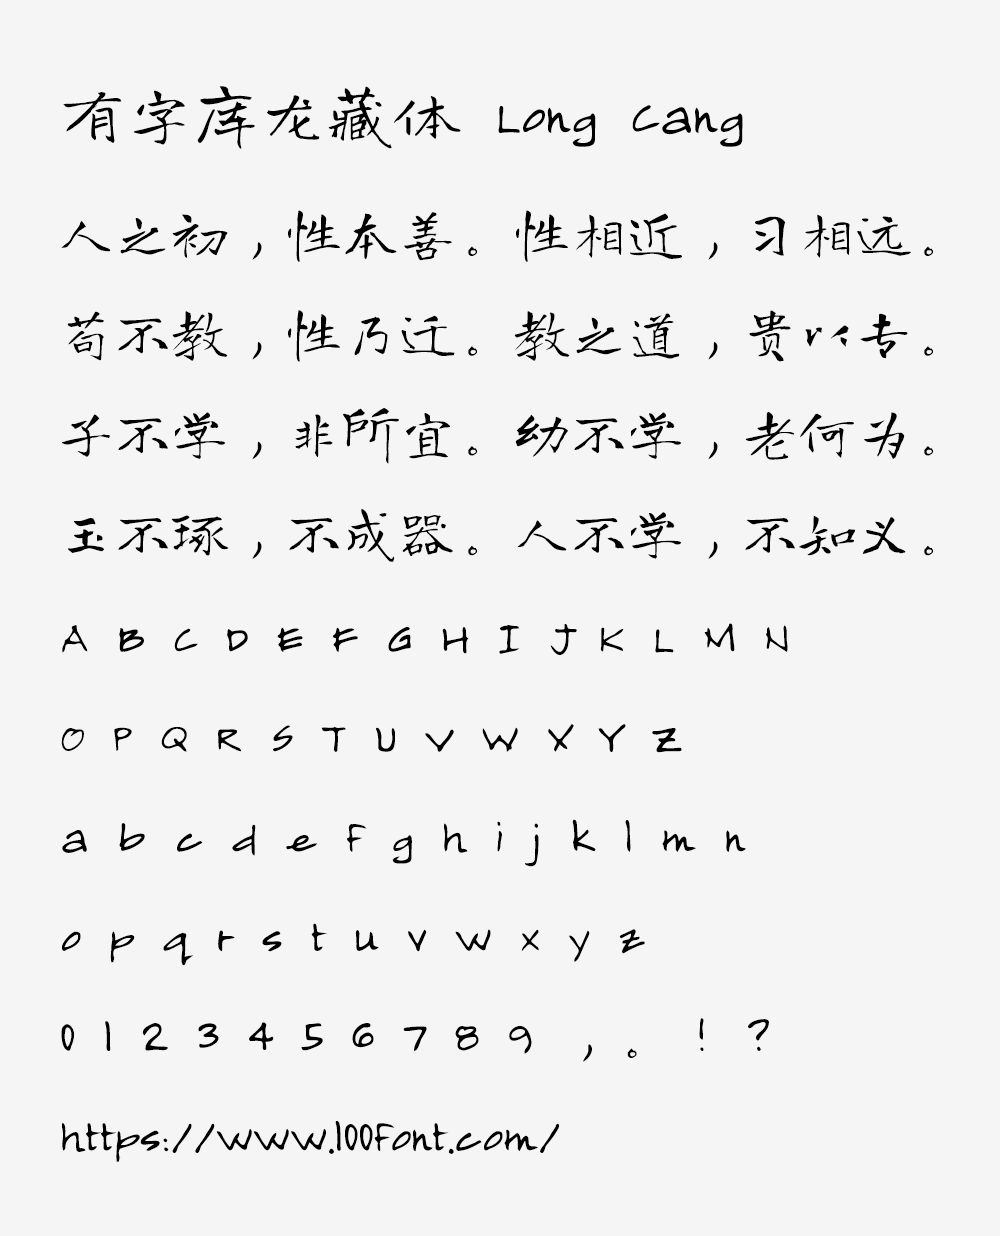 有字库龙藏体 Long Cang
人之初，性本善。性相近，习相远。
苟不教，性乃迁。教之道，贵以专。
子不学，非所宜。幼不学，老何为。
玉不琢，不成器。人不学，不知义。
A B C D E F G H I J K L M N
O P Q R S T U V W X Y Z
a b c d e f g h i j k l m n
o p q r s t u v w x y z
0 1 2 3 4 5 6 7 8 9 ，。！？
https://www.100font.com/